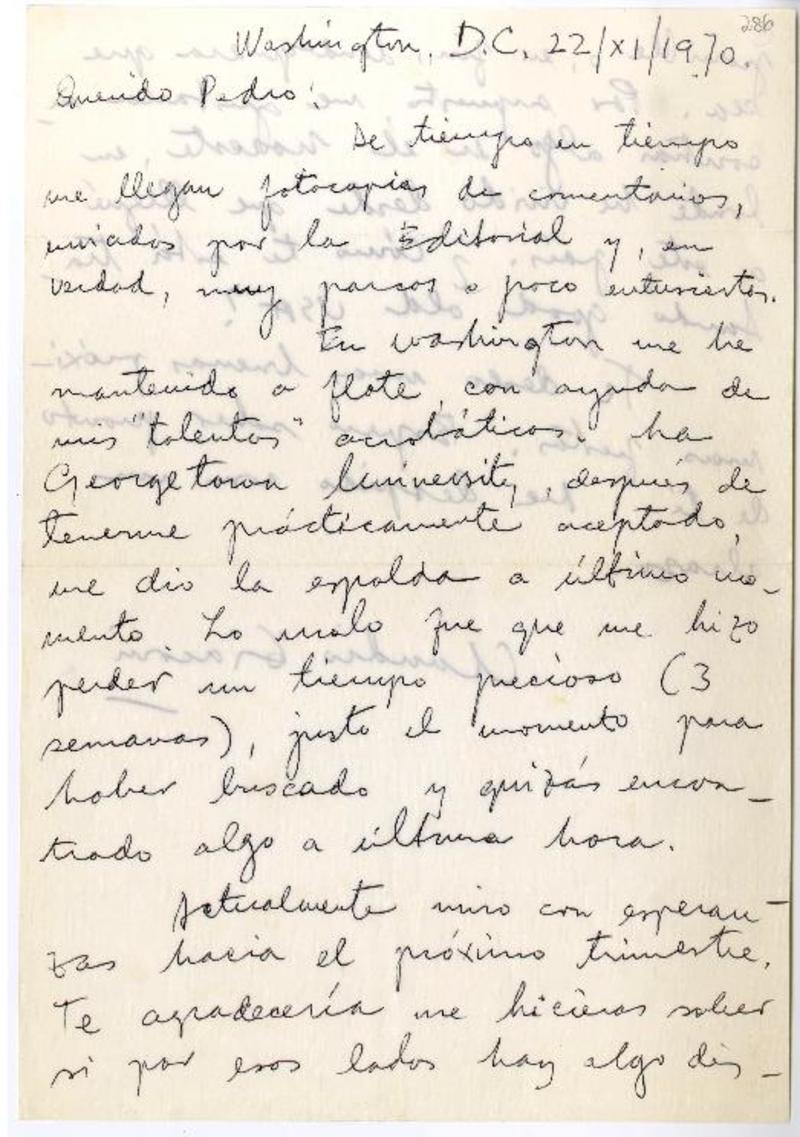 286
Washington, D.C. 22/XI/1970.
Querido Pedro:
De tiempo en tiempo
me llegan fotocopias de comentarios,
enviados por la Editorial y, en
verdad, muy parcos o poco entusiastas.
En Washington me he
mantenido a flote, con ayuda de
mis "talentos" acrobáticos. La
Georgetown University, después de
tenerme prácticamente aceptado,
me dio la espalda a último mo-
mento. Lo malo fue que me hizo
perder un tiempo precioso (3
semanas), justo el momento para
haber buscado y quizás encon-
trado algo a última hora.
Actualmente miro con esperan-
zas hacia el próximo trimestre.
Te agradecería me hicieras saber
si por esos lados hay algo dis-